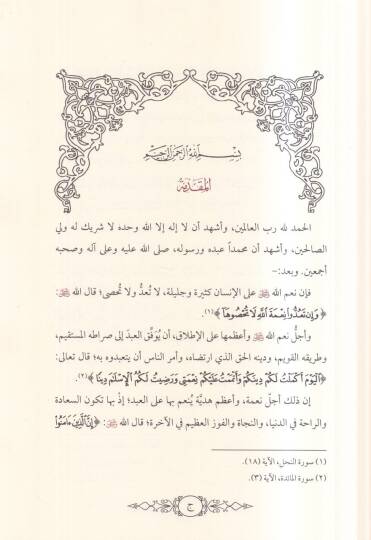 بسم الله الرحمن الرحيم
المقدمة
الحمد لله رب العالمين، وأشهد أن لا إله إلا الله وحده لا شريك له ولي
الصالحين، وأشهد أن محمداً عبده ورسوله، صلى الله عليه وعلى آله وصحبه
أجمعين. وبعد:-
فإن نعم الله ﷻ على الإنسان كثيرة وجليلة، لا تُعدُّ ولا تُحصى؛ قال الله ﷻ:
﴿وَإِن تَعُدُّوا نِعْمَةَ اللَّهِ لَا تُحْصُوهَا﴾(١).
وأجلُّ نعم الله ﷻ وأعظمها على الإطلاق، أن يُوَفَّق العبدُ إلى صراطه المستقيم،
وطريقه القويم، ودينه الحق الذي ارتضاه، وأمر الناس أن يتعبدوه به؛ قال تعالى:
﴿الْيَوْمَ أَكْمَلْتُ لَكُمْ دِينَكُمْ وَأَتْمَمْتُ عَلَيْكُمْ نِعْمَتِي وَرَضِيتُ لَكُمُ الْإِسْلَامَ دِينًا﴾(٢).
إن ذلك أجلّ نعمة، وأعظم هديَّة يُنعم بها على العبد؛ إذْ بها تكون السعادة
والراحة في الدنيا، والنجاة والفوز العظيم في الآخرة؛ قال الله ﷻ: ﴿إِنَّ الَّذِينَ ءَامَنُوا
(١) سورة النحل، الآية (١٨).
(٢) سورة المائدة، الآية (٣).
ج